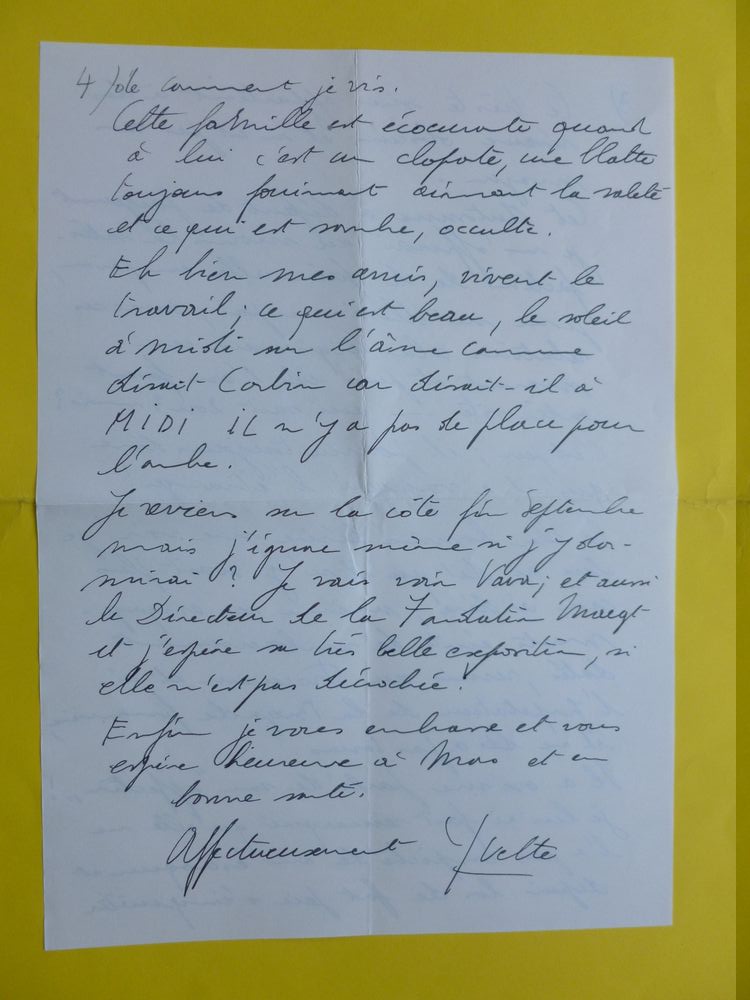 4) de comment je vis.
Cette famille est écoeurante quand
à lui c'est un cloporte, une blatte
toujours fouinant aimant la saleté
et ce qui est sombre, occulte.
Eh bien mes amis, vivent le
travail; ce qui est beau, le soleil
à midi sur l'âme comme
disait Corbin car disait-il à
MIDI IL n'y a pas de place pour
l'ombre.
Je reviens sur la côte fin Septembre
mais j'ignore même si j'y dor-
mirai ? Je vais voir Vava; et aussi
le Directeur de la Fondation Maegt
et j'espère sa très belle exposition, si
elle n'est pas décrochée.
Enfin je vous embrasse et vous
espère heureuse à Mas et en
bonne santé.
Affectueusement Yvette